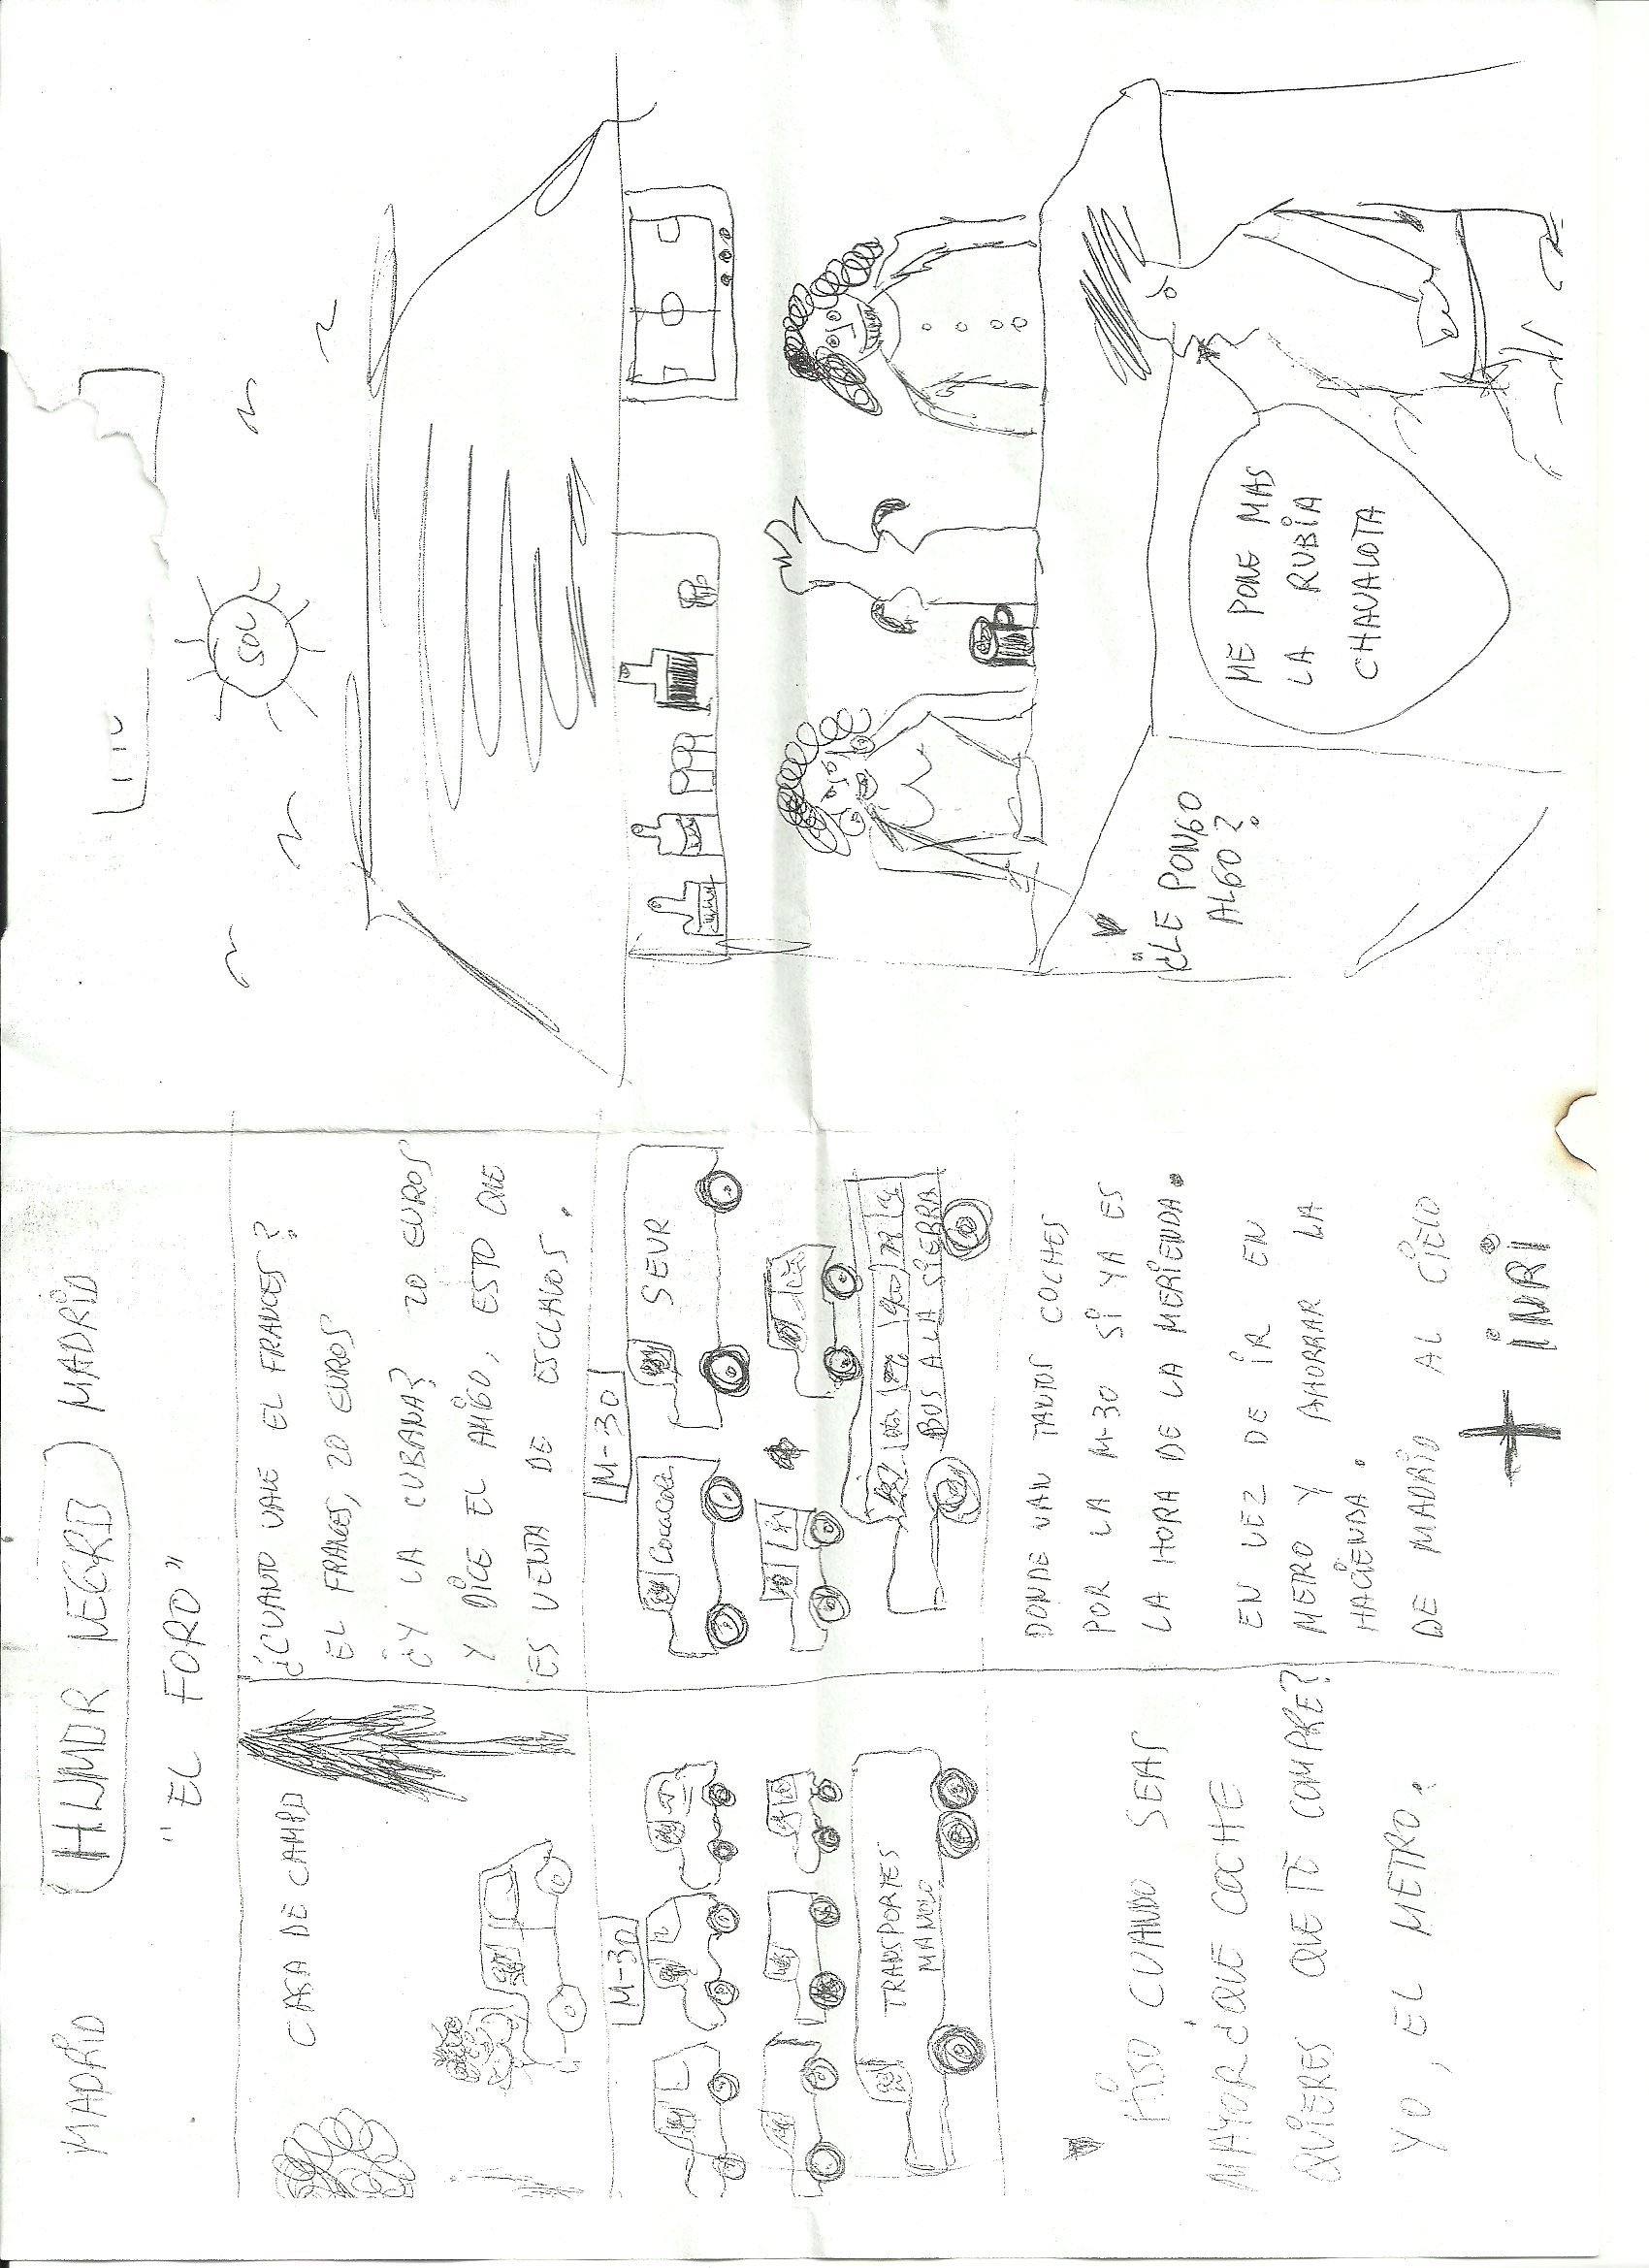 MADRID HUMOR NEGRO MADRID
"EL FORO"
CASA DE CAMPO
¿CUANTO VALE EL FRANCES?
EL FRANCES, 20 EUROS
¿Y LA CUBANA? 20 EUROS
Y DICE EL AMIGO, ESTO QUE
ES VENTA DE ESCLAVOS.
M-30
TRANSPORTES
MANOLO
M-30
Cocacola
SEUR
BUS A LA SIERRA
HISO CUANDO SEAS
MAYOR ¿QUE COCHE
QUIERES QUE TE COMPRE?
YO, EL METRO.
DONDE VAN TANTOS COCHES
POR LA M-30 SI YA ES
LA HORA DE LA MERIENDA.
EN VEZ DE IR EN
METRO Y AHORRAR LA
HACIENDA.
DE MADRID AL CIELO
INRI
SOL
¿LE PONGO
ALGO?
ME PONE MAS
LA RUBIA
CHAVALOTA